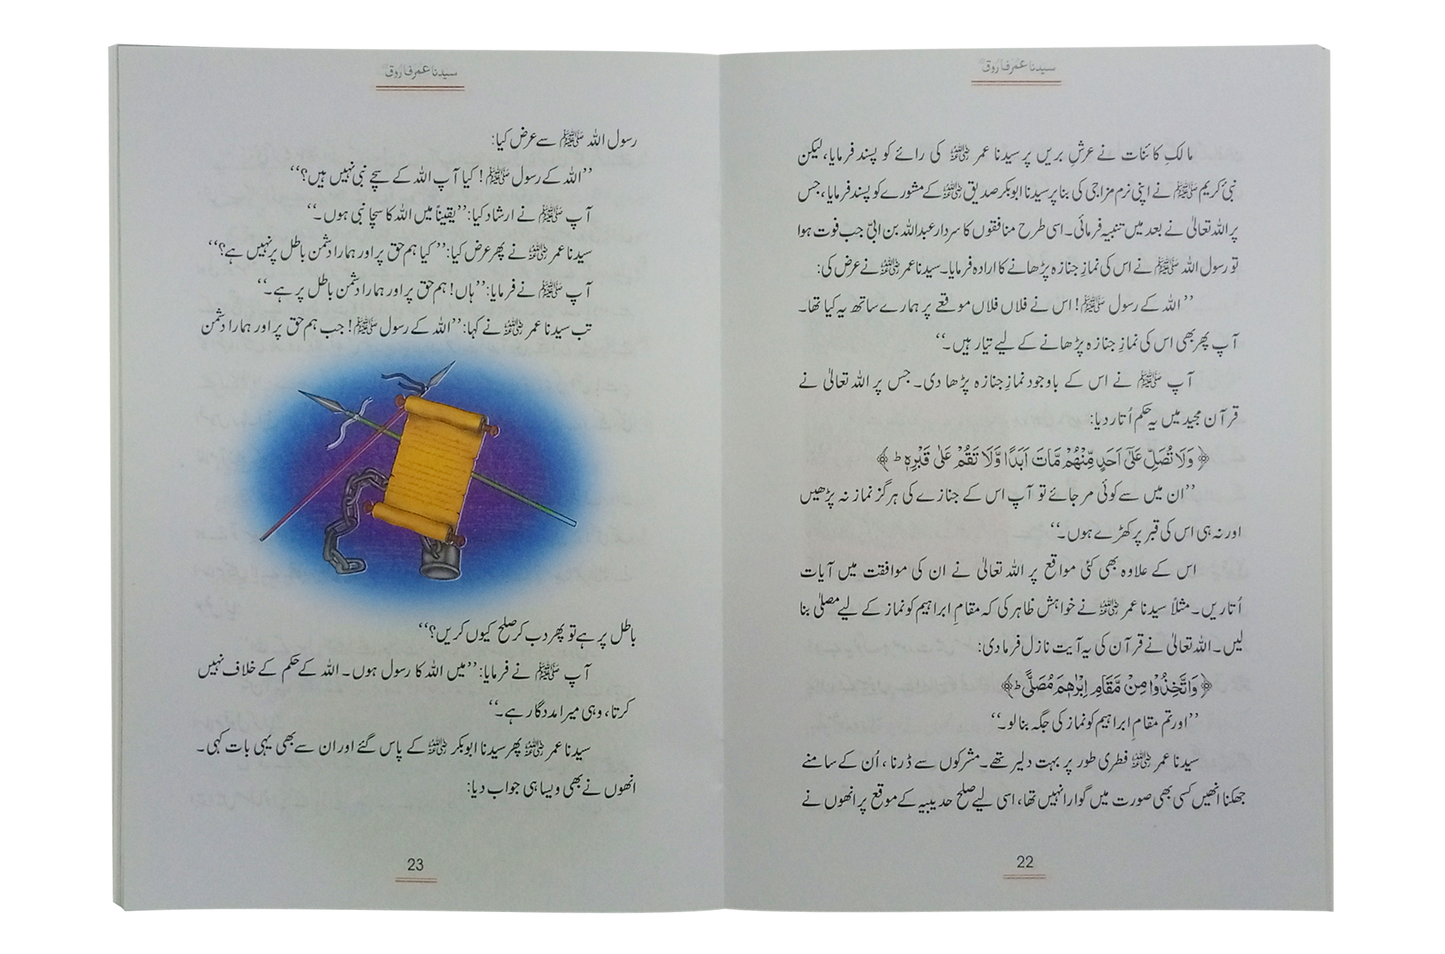 سیدنا عمر فاروقؓ
مالکِ کائنات نے عرشِ بریں پر سیدنا عمر ؓ کی رائے کو پسند فرمایا، لیکن
نبیٔ کریم ﷺ نے اپنی نرم مزاجی کی بنا پر سیدنا ابوبکر صدیق ؓ کے مشورے کو پسند فرمایا، جس
پر اللہ تعالیٰ نے بعد میں تنبیہ فرمائی۔ اسی طرح منافقوں کا سردار عبداللہ بن ابیّ جب فوت ہوا
تو رسول اللہ ﷺ نے اس کی نمازِ جنازہ پڑھانے کا ارادہ فرمایا۔ سیدنا عمر ؓ نے عرض کی:
’’اللہ کے رسول ﷺ! اس نے فلاں فلاں موقعے پر ہمارے ساتھ یہ کیا تھا۔
آپ پھر بھی اس کی نمازِ جنازہ پڑھانے کے لیے تیار ہیں۔‘‘
آپ ﷺ نے اس کے باوجود نمازِ جنازہ پڑھا دی۔ جس پر اللہ تعالیٰ نے
قرآن مجید میں یہ حکم اُتار دیا:
﴿ وَلَا تُصَلِّ عَلٰٓى اَحَدٍ مِّنْهُمْ مَّاتَ اَبَدًا وَّلَا تَقُمْ عَلٰى قَبْرِهٖ ؕ ﴾
’’ان میں سے کوئی مر جائے تو آپ اس کے جنازے کی ہرگز نماز نہ پڑھیں
اور نہ ہی اس کی قبر پر کھڑے ہوں۔‘‘
اس کے علاوہ بھی کئی مواقع پر اللہ تعالیٰ نے ان کی موافقت میں آیات
اُتاریں۔ مثلاً سیدنا عمر ؓ نے خواہش ظاہر کی کہ مقامِ ابراہیم کو نماز کے لیے مصلیٰ بنا
لیں۔ اللہ تعالیٰ نے قرآن کی یہ آیت نازل فرما دی:
﴿ وَاتَّخِذُوْا مِنْ مَّقَامِ اِبْرٰهٖمَ مُصَلًّى ؕ ﴾
’’اور تم مقامِ ابراہیم کو نماز کی جگہ بنا لو۔‘‘
سیدنا عمر ؓ فطری طور پر بہت دلیر تھے۔ مشرکوں سے ڈرنا، اُن کے سامنے
جھکنا انھیں کسی بھی صورت میں گوارا نہیں تھا، اسی لیے صلح حدیبیہ کے موقع پر انھوں نے
22
سیدنا عمر فاروقؓ
رسول اللہ ﷺ سے عرض کیا:
’’اللہ کے رسول ﷺ! کیا آپ اللہ کے سچے نبی نہیں ہیں؟‘‘
آپ ﷺ نے ارشاد کیا: ’’یقیناً میں اللہ کا سچا نبی ہوں۔‘‘
سیدنا عمر ؓ نے پھر عرض کیا: ’’کیا ہم حق پر اور ہمارا دشمن باطل پر نہیں ہے؟‘‘
آپ ﷺ نے فرمایا: ’’ہاں! ہم حق پر اور ہمارا دشمن باطل پر ہے۔‘‘
تب سیدنا عمر ؓ نے کہا: ’’اللہ کے رسول ﷺ! جب ہم حق پر اور ہمارا دشمن
باطل پر ہے تو پھر دب کر صلح کیوں کریں؟‘‘
آپ ﷺ نے فرمایا: ’’میں اللہ کا رسول ہوں۔ اللہ کے حکم کے خلاف نہیں
کرتا، وہی میرا مددگار ہے۔‘‘
سیدنا عمر ؓ پھر سیدنا ابوبکر ؓ کے پاس گئے اور ان سے بھی یہی بات کہی۔
انھوں نے بھی ویسا ہی جواب دیا:
23